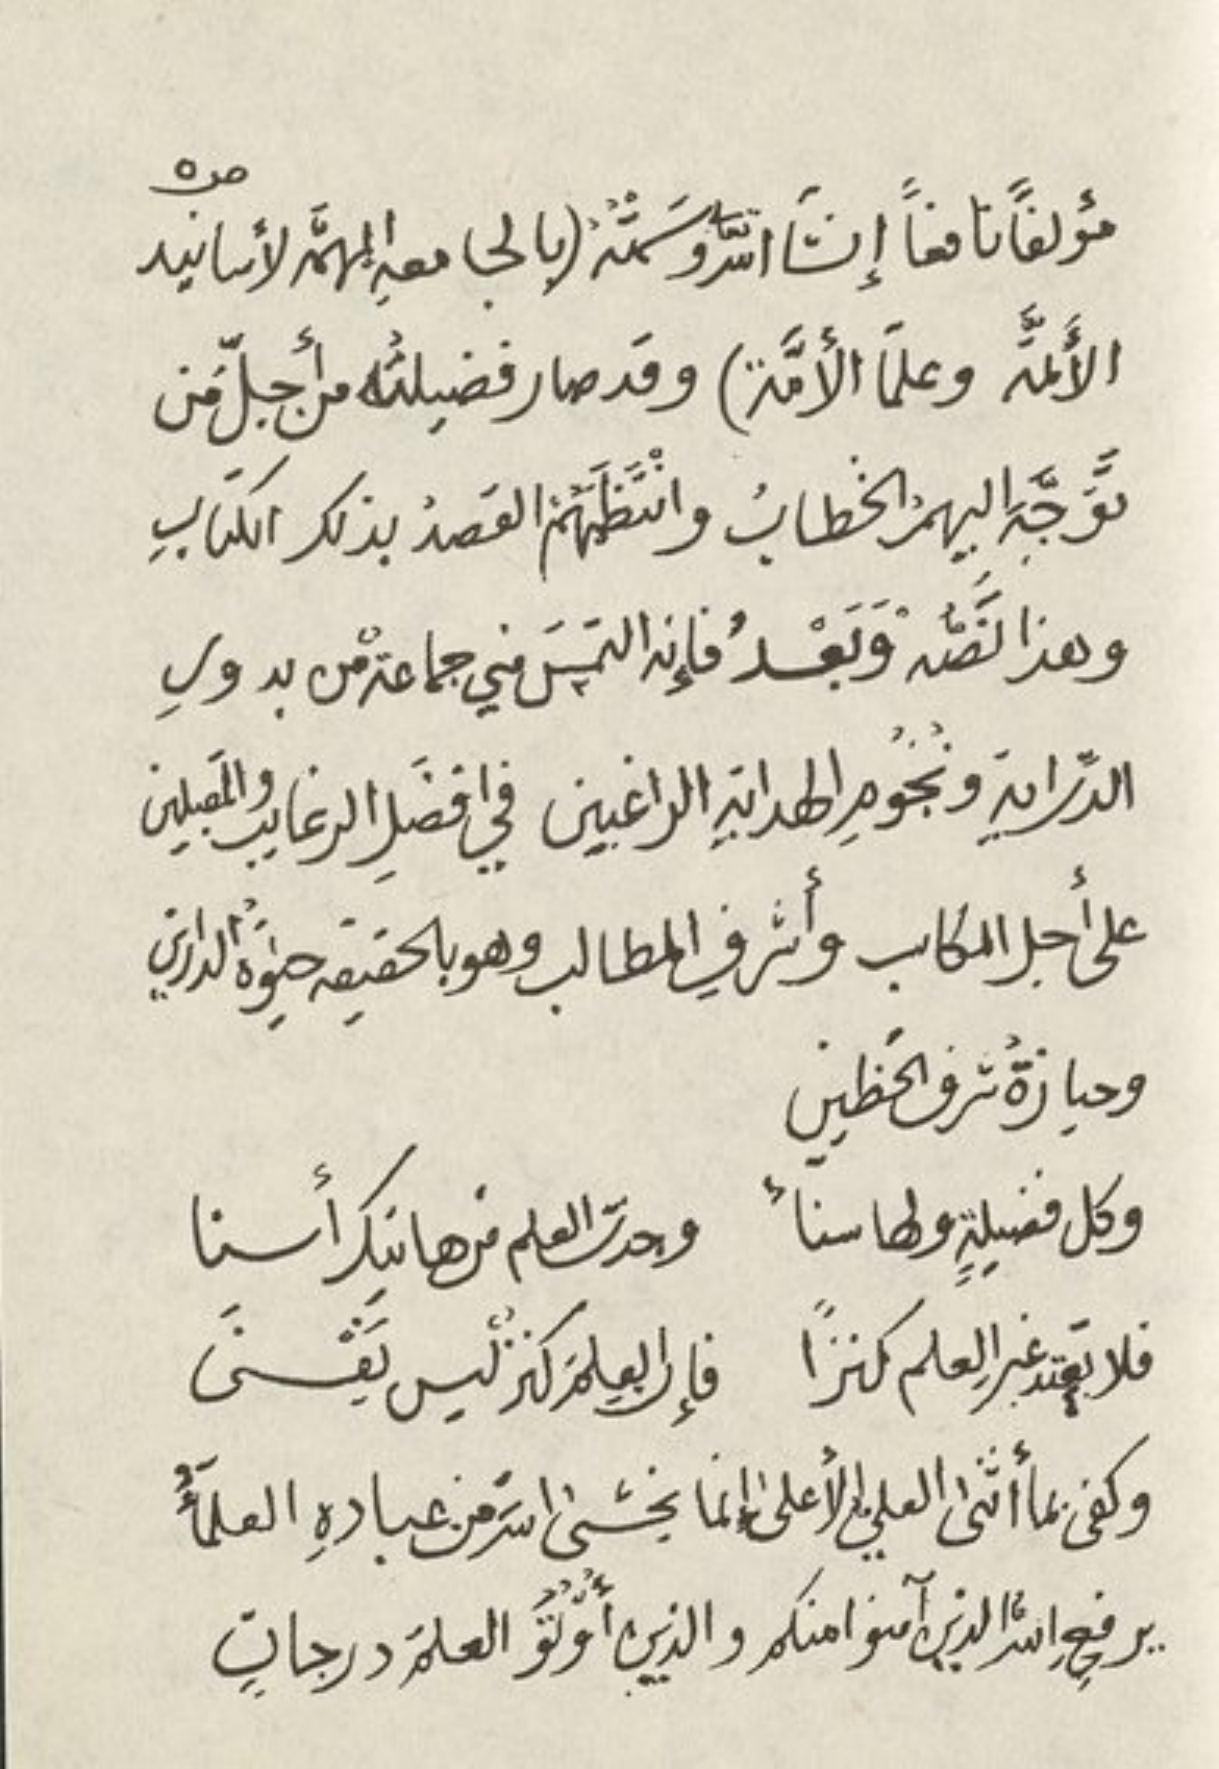 ص٥
مؤلفاً نافعاً إنشَاءَ اللّٰه وسَمَّيْتُهُ (بالجامعهِ المهمَّه لأسانيد
الأَئمَّه وعلمَاءَ الأمَّة) وقد صار فضيلتُه من أجلِّ مَن
تَوَجَّهَ اليهمُ الخطابُ وانْتَظَمَهُمُ القصدُ بذلك الكتابِ
وهذا نَصُّه وَبَعْدُ فإنه التمسَ مني جماعةٌ من بدورِ
الدِّرايةِ ونُجُومِ الهدايةِ الراغبين في افضَلِ الرغايب والمقبلين
على أجل المكاسب وأشرفِ المطالب وهو بالحقيقه حيٰوةُ الدارين
وحيازةُ شرف الحَظين
وكل فضيلةٍ ولها سناءٌ وجدتُ العلم من هاتيكَ أسنا
فلا تعتد غير العلم كنزًا فإن العلمَ كنزٌ ليس يَفْنىَ
وكفى بما أثنىٰ العلي الأعلىٰ إنما يخشىٰ اللّٰهَ من عبادهِ العلمَاءُ
يرفعِ اللّٰه الذين آمنوا منكم والذين أُوْتُوُ العلمَ درجاتٍ